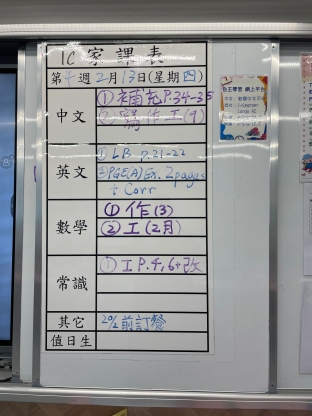 1C 家課表
第十週2月13日(星期四)
中文
①補充P.34-35
②寫作工(9)
英文
①LB p.21-22
②PGE(A) Ex. 2pages
+ Corr
數學
①作(3)
②工(2月)
常識
①工P.4,6+改
其它
20/2前訂餐
值日生
自主學習 網上平台